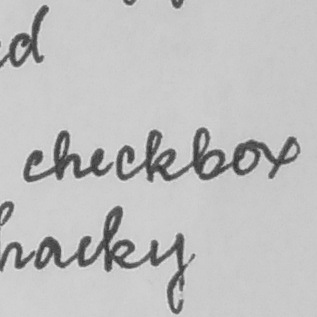 checkbox
hacky